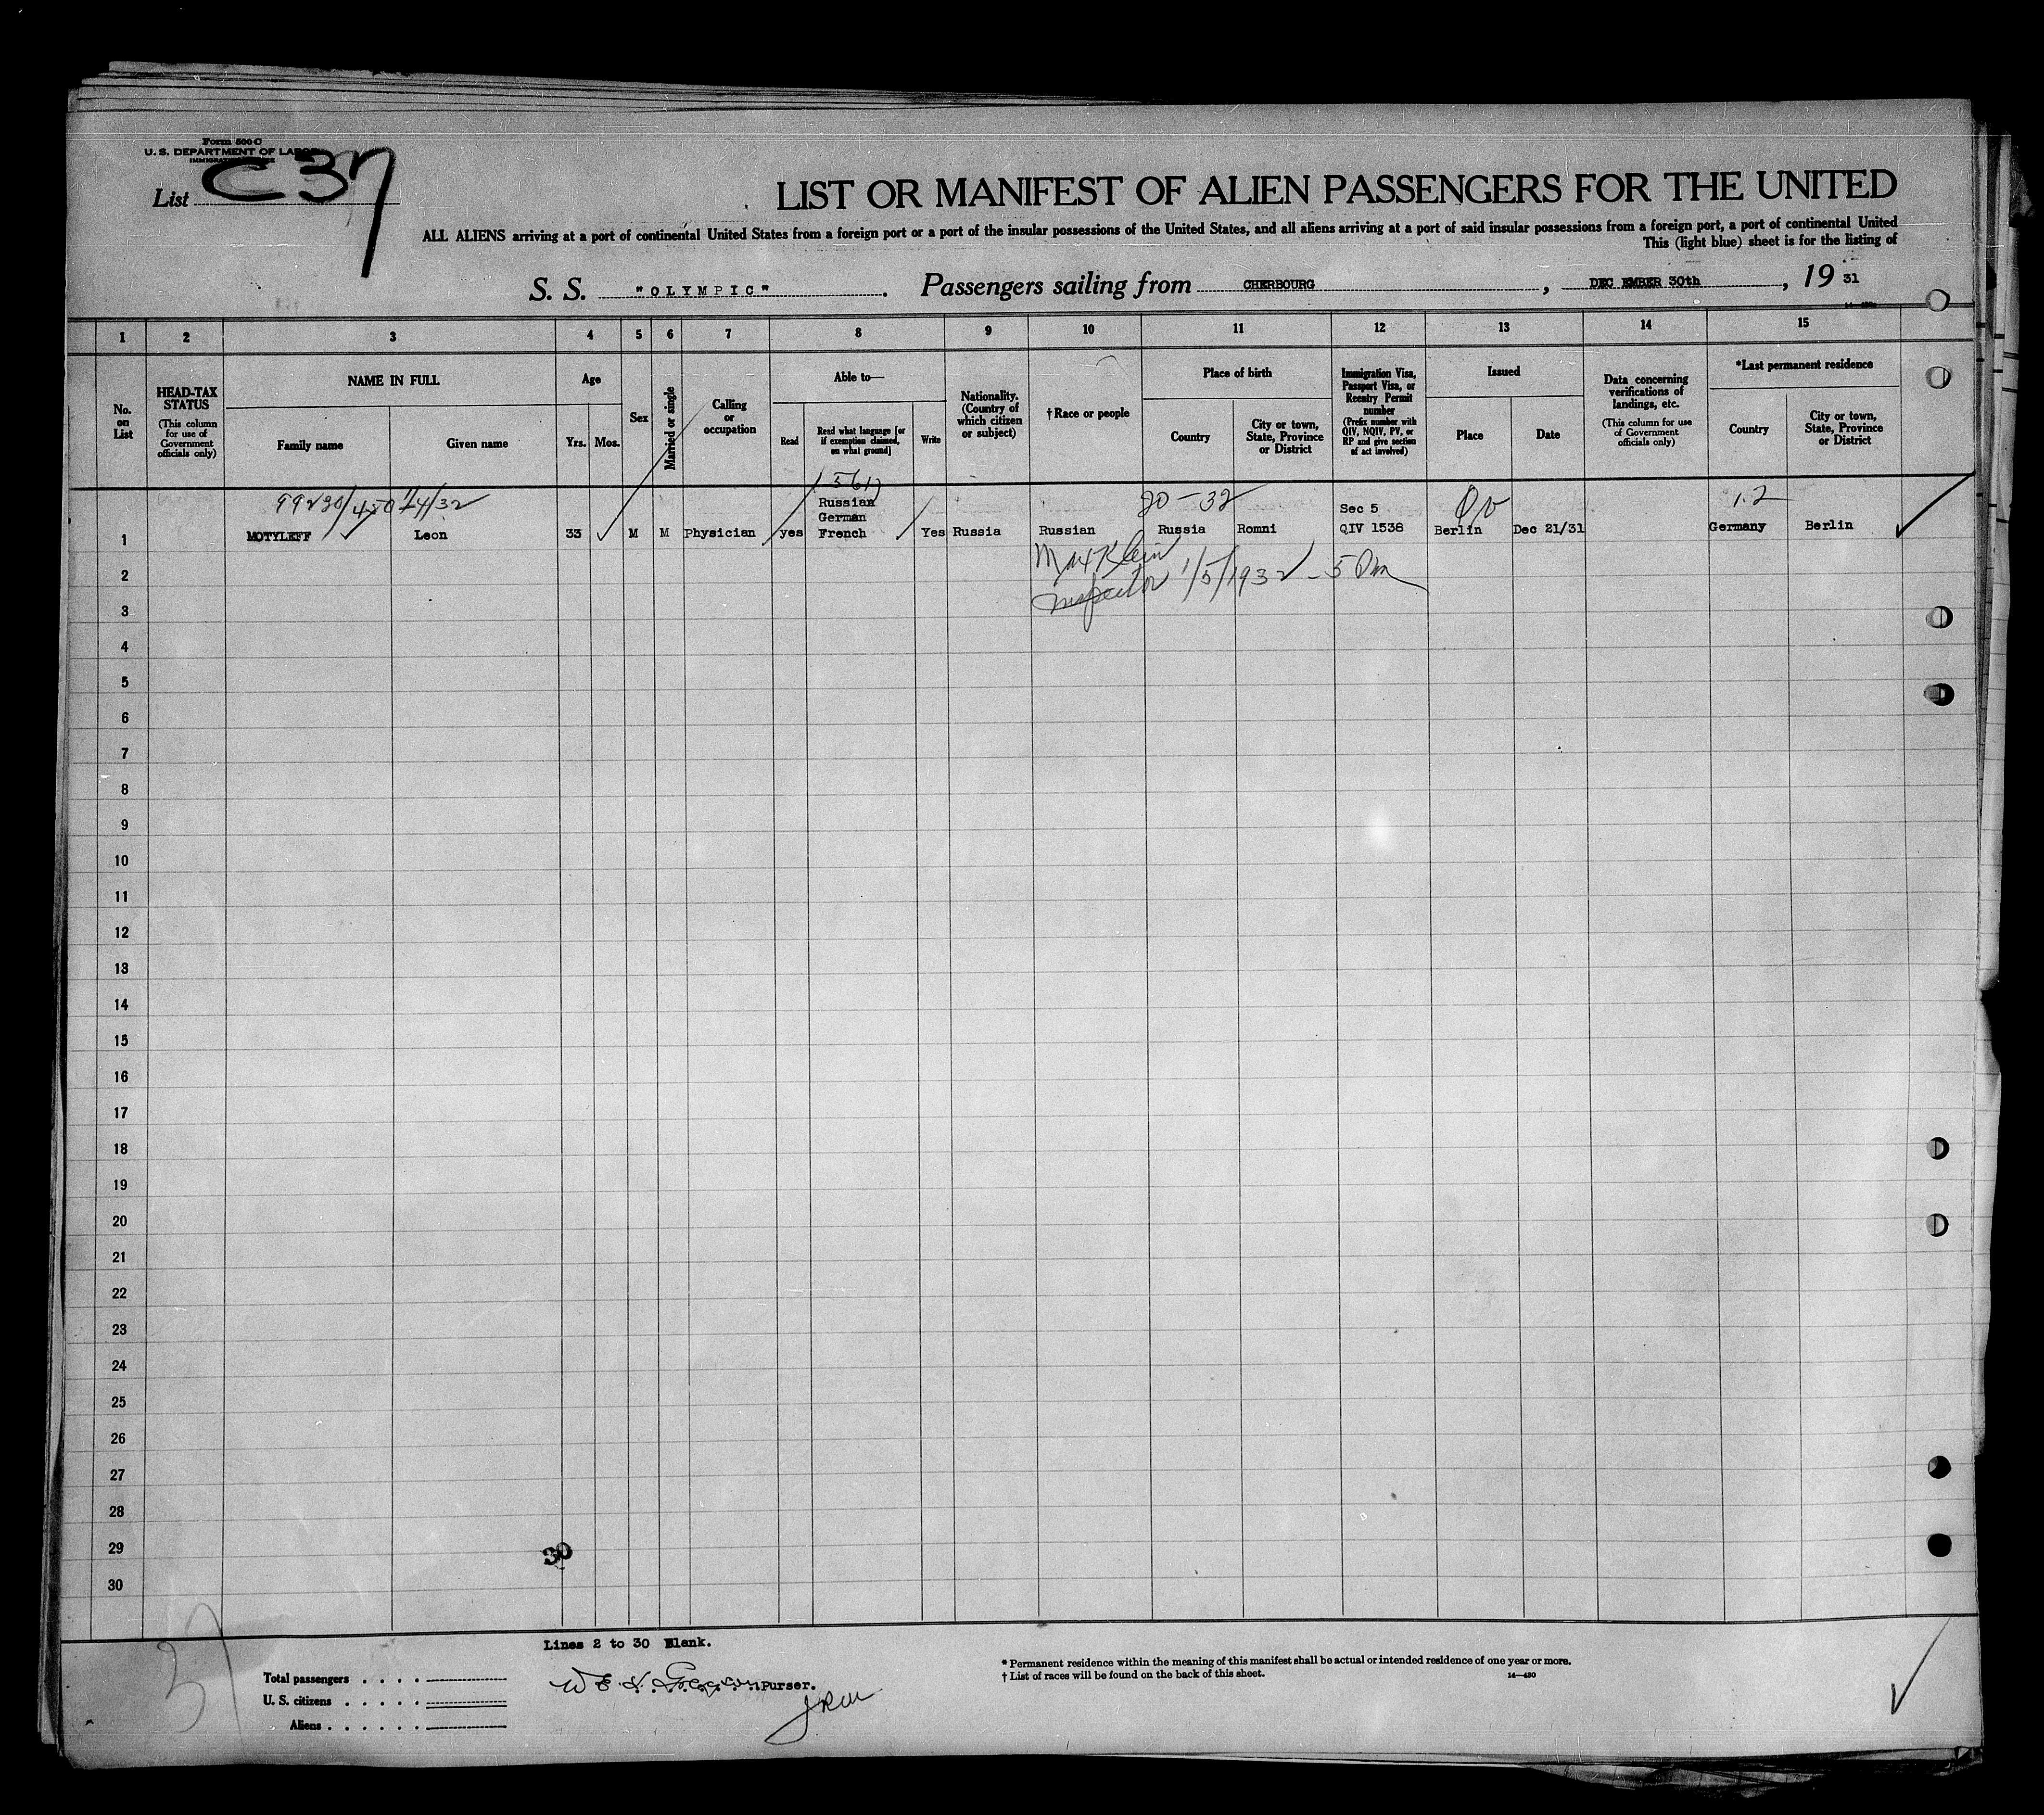 Form 500 C
U. S. DEPARTMENT OF LABOR
List C 37
LIST OR MANIFEST OF ALIEN PASSENGERS FOR THE UNITED
ALL ALIENS arriving at a port of continental United States from a foreign port or a port of the insular possessions of the United States, and all aliens arriving at a port of said insular possessions from a foreign port, a port of continental United
This (light blue) sheet is for the listing of
S. S. "OLYMPIC". Passengers sailing from CHERBOURG, DEC EMBER 30th, 19 31
1 2 3 4 5 6 7 8 9 10 11 12 13 14 15
No. on List
HEAD-TAX STATUS
(This column for use of Government officials only)
NAME IN FULL
Family name
Given name
Age
Yrs.
Mos.
Sex
Married or single
Calling or occupation
Able to—
Read
Read what language [or if exemption claimed, on what ground]
Write
Nationality. (Country of which citizen or subject)
†Race or people
Place of birth
Country
City or town, State, Province or District
Immigration Visa, Passport Visa, or Reentry Permit number
(Prefix number with QIV, NQIV, PV, or RP and give section of act involved)
Issued
Place
Date
Data concerning verifications of landings, etc.
(This column for use of Government officials only)
*Last permanent residence
Country
City or town, State, Province or District
99230/450 1/4/32
20-32
1.2
1 MOTYLEFF Leon 33 M M Physician yes Russian German French Yes Russia Russian Russia Romni Sec 5 QIV 1538 Berlin Dec 21/31 Germany Berlin
Max Klein
Inspector 1/5/1932 - 5 Pm
2
3
4
5
6
7
8
9
10
11
12
13
14
15
16
17
18
19
20
21
22
23
24
25
26
27
28
29
30
30
Lines 2 to 30 Blank.
Purser.
Total passengers . . . .
U. S. citizens . . . . .
Aliens . . . . . .
* Permanent residence within the meaning of this manifest shall be actual or intended residence of one year or more.
† List of races will be found on the back of this sheet.
14—430